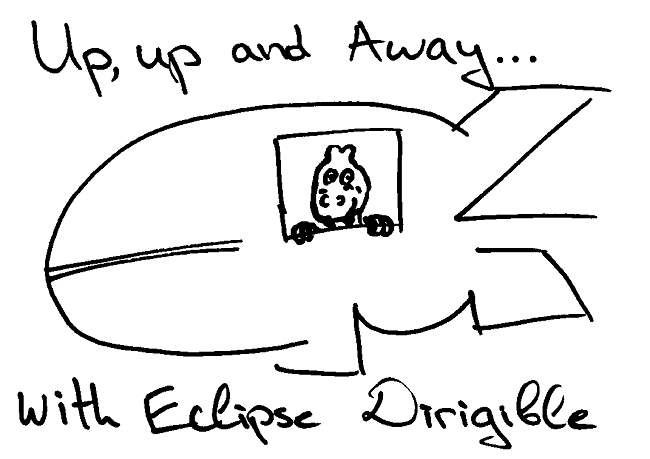 Up, up and Away...
With Eclipse Dirigible